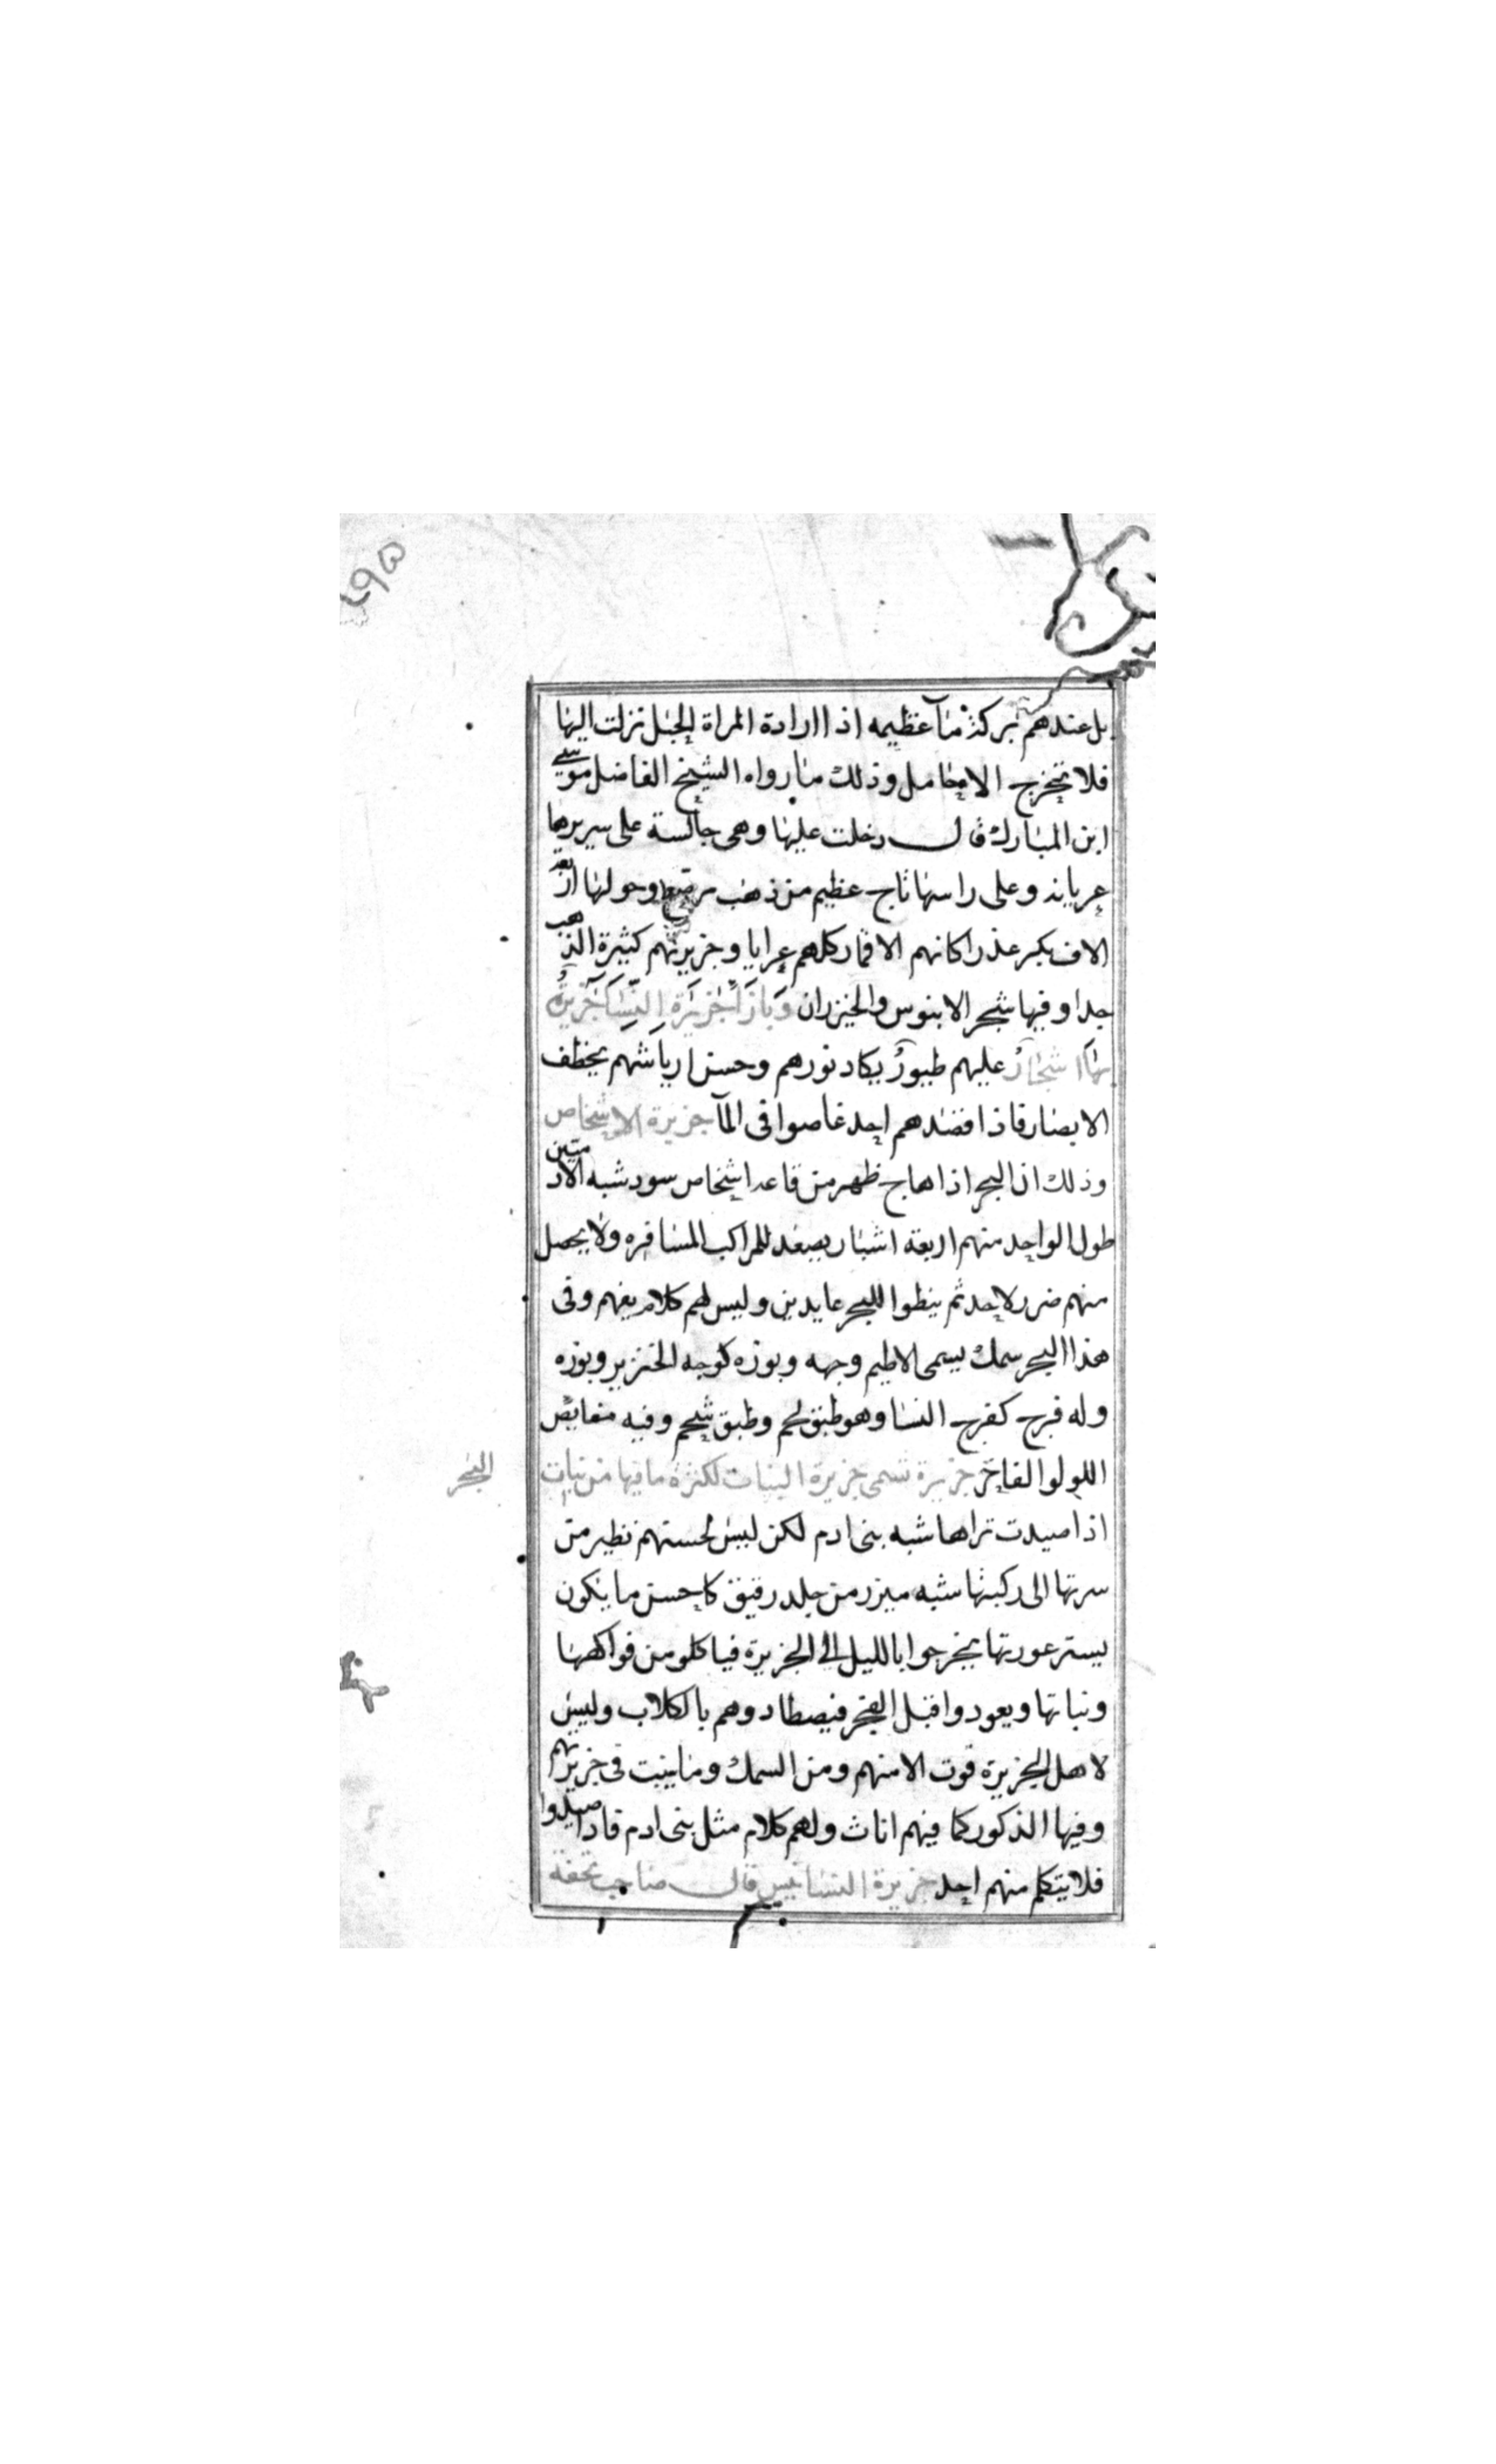 بل عندهم بركة مآ عظيمه اذا ارادة المراة الحبل نزلت اليها
فلا تخرج الا حامل وذلك ما رواه الشيخ الفاضل موسى
ابن المبارك قال دخلت عليها وهى جالسة على سريرها
عريانه وعلى راسها تاج عظيم من ذهب مرصع وحولها اربعة
الاف بكر عذرا كانهم الاقمار كلهم عرايا وجزيرتهم كثيرة الذهب
جدا وفيها شجر الابنوس والخيزران وَبازآ جَزيَرة النِسَا جَزيرَة
بهَا اشجَارُ عليهم طيورُ يكاد نورهم وحسن ارياشهم يخطف
الابصار فاذا قصدهم احد غاصوا فى المآ جزيرة الاشخاص
وذلك ان البحر اذا هاج ظهر من قاعه اشخاص سود شبه الادميين
طول الواحد منهم اربعة اشبار يصعد للمراكب المسافره ولا يحصل
منهم ضرر لاحد ثم ينطوا للبحر عايدين وليس لهم كلام يفهم وفى
هذا البحر سمك يسمى الاطيم وجهه وبوزه كوجه الخنزير وبوزه
وله فرج كفرج النسا وهو طبق لحم وطبق شحم وفيه مغايص
اللولو الفاخر جزيرة تسمى جزيرة البنات لكثرة ما فيها من بنات
البحر
اذا صيدت تراها شبه بنى ادم لكن ليس لحسنهم نظير من
سرتها الى ركبتها شبه ميزر من جلد رقيق كاحسن ما يكون
يستر عورتها يخرجوا بالليل الى الجزيرة فياكلو من فواكهها
ونباتها ويعودوا قبل الفجر فيصطادوهم بالكلاب وليس
لاهل الجزيرة قوت الا منهم ومن السمك وما ينبت فى جزيرتهم
وفيها الذكور كما فيهم اناث ولهم كلام مثل بنى ادم فاذا صيدوا
فلا يتكلم منهم احد جزيرة النسانيس قال صاحب تحفة